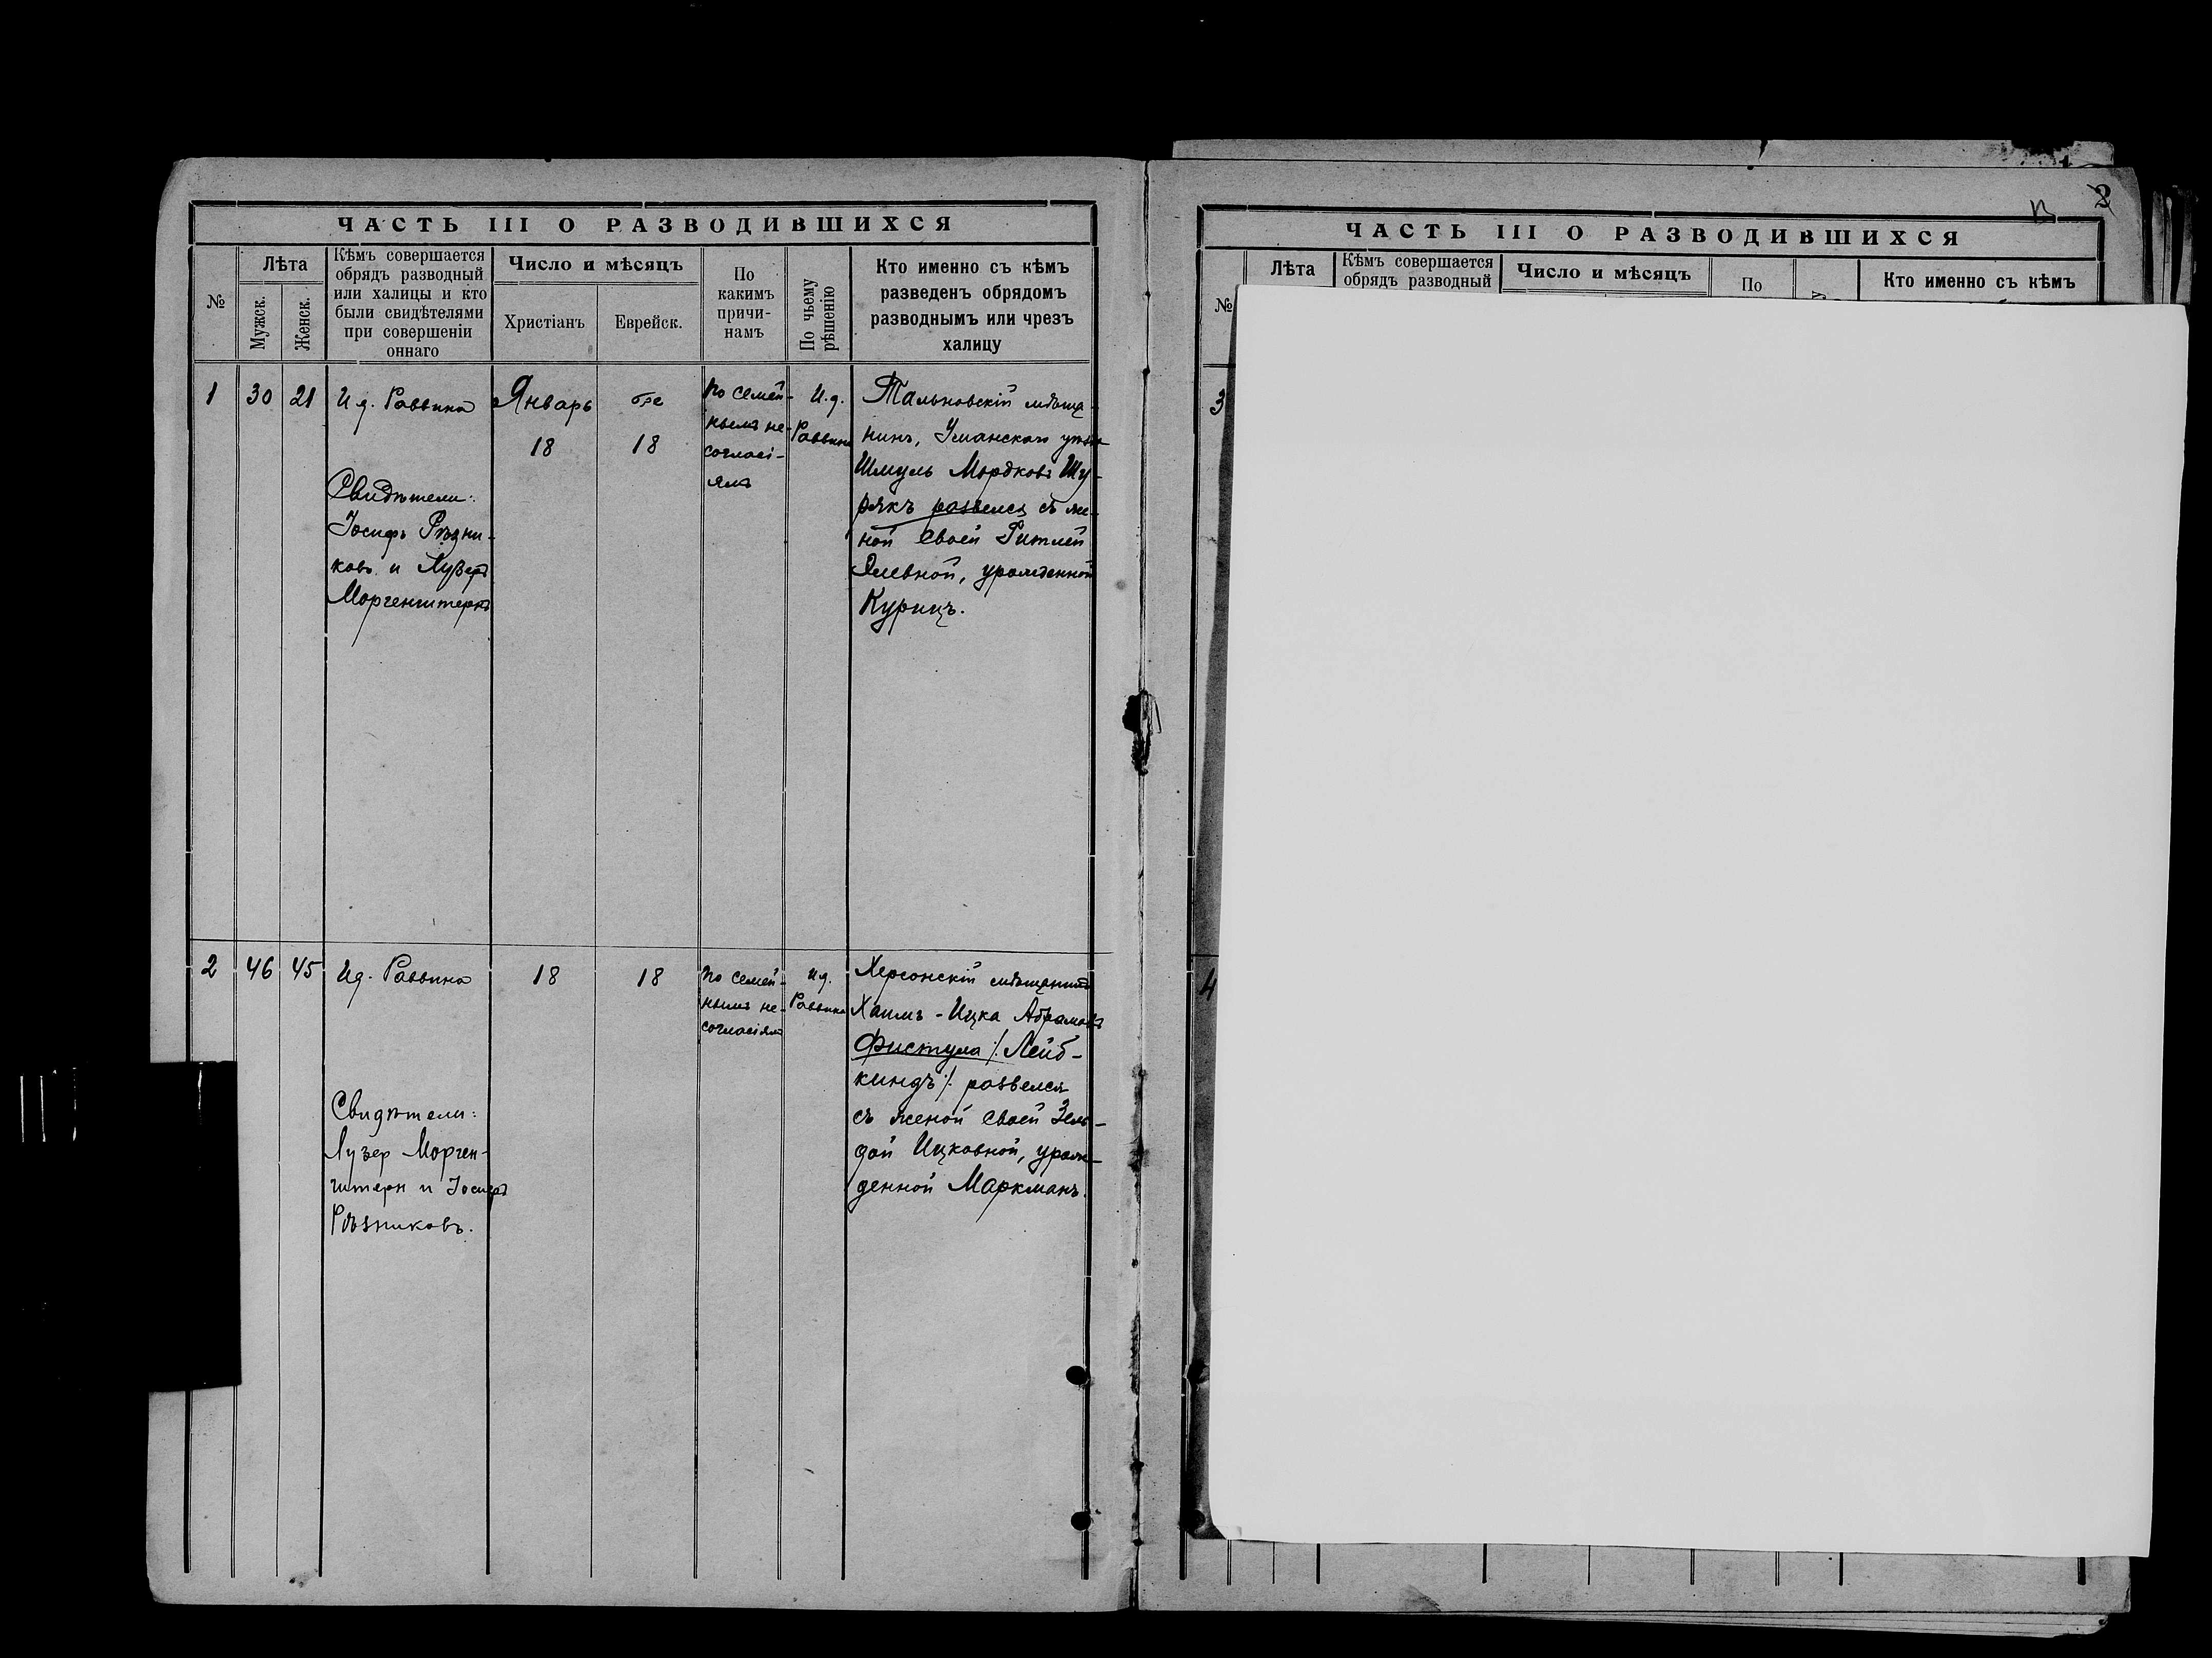 ЧАСТЬ III О РАЗВОДИВШИХСЯ
№
Лѣта
Мужск.
Женск.
Кѣмъ совершается
обрядъ разводный
или халицы и кто
были свидѣтелями
при совершеніи
оннаго
Число и мѣсяцъ
Христіанъ
Еврейск.
По
какимъ
причи-
намъ
По чьему
рѣшенію
Кто именно съ кѣмъ
разведенъ обрядомъ
разводнымъ или чрезъ
халицу
1
30
21
И д. Раввина
Свидѣтели:
Іосифъ Рѣзни-
ковъ и Лузеръ
Моргенштернъ
Январь
18
18
по семей-
нымъ не-
согласі-
ямъ
И.д.
Раввина
Тальновскій мѣща-
нинъ, Уманскаго уѣзда
Шмуль Мордковъ Шу-
рякъ развелся съ же-
ной своей
урожденной
Курицъ.
2
46
45
Ид. Раввина
Свидѣтели:
Лузер Морген-
штерн и Іосифъ
Рѣзниковъ.
18
18
по семей-
нымъ не-
согласіям
ид.
Раввина
Херсонскій мѣщанинъ
Хаимъ-Ицка Абрамовъ
Фистула /: Лейб-
киндъ :/ развелся
съ женой своей Зель-
дой Ицковной, урож-
денной Маркманъ.
2
ЧАСТЬ III О РАЗВОДИВШИХСЯ
№
Лѣта
Кѣмъ совершается
обрядъ разводный
Число и мѣсяцъ
По
Кто именно съ кѣмъ
3
4